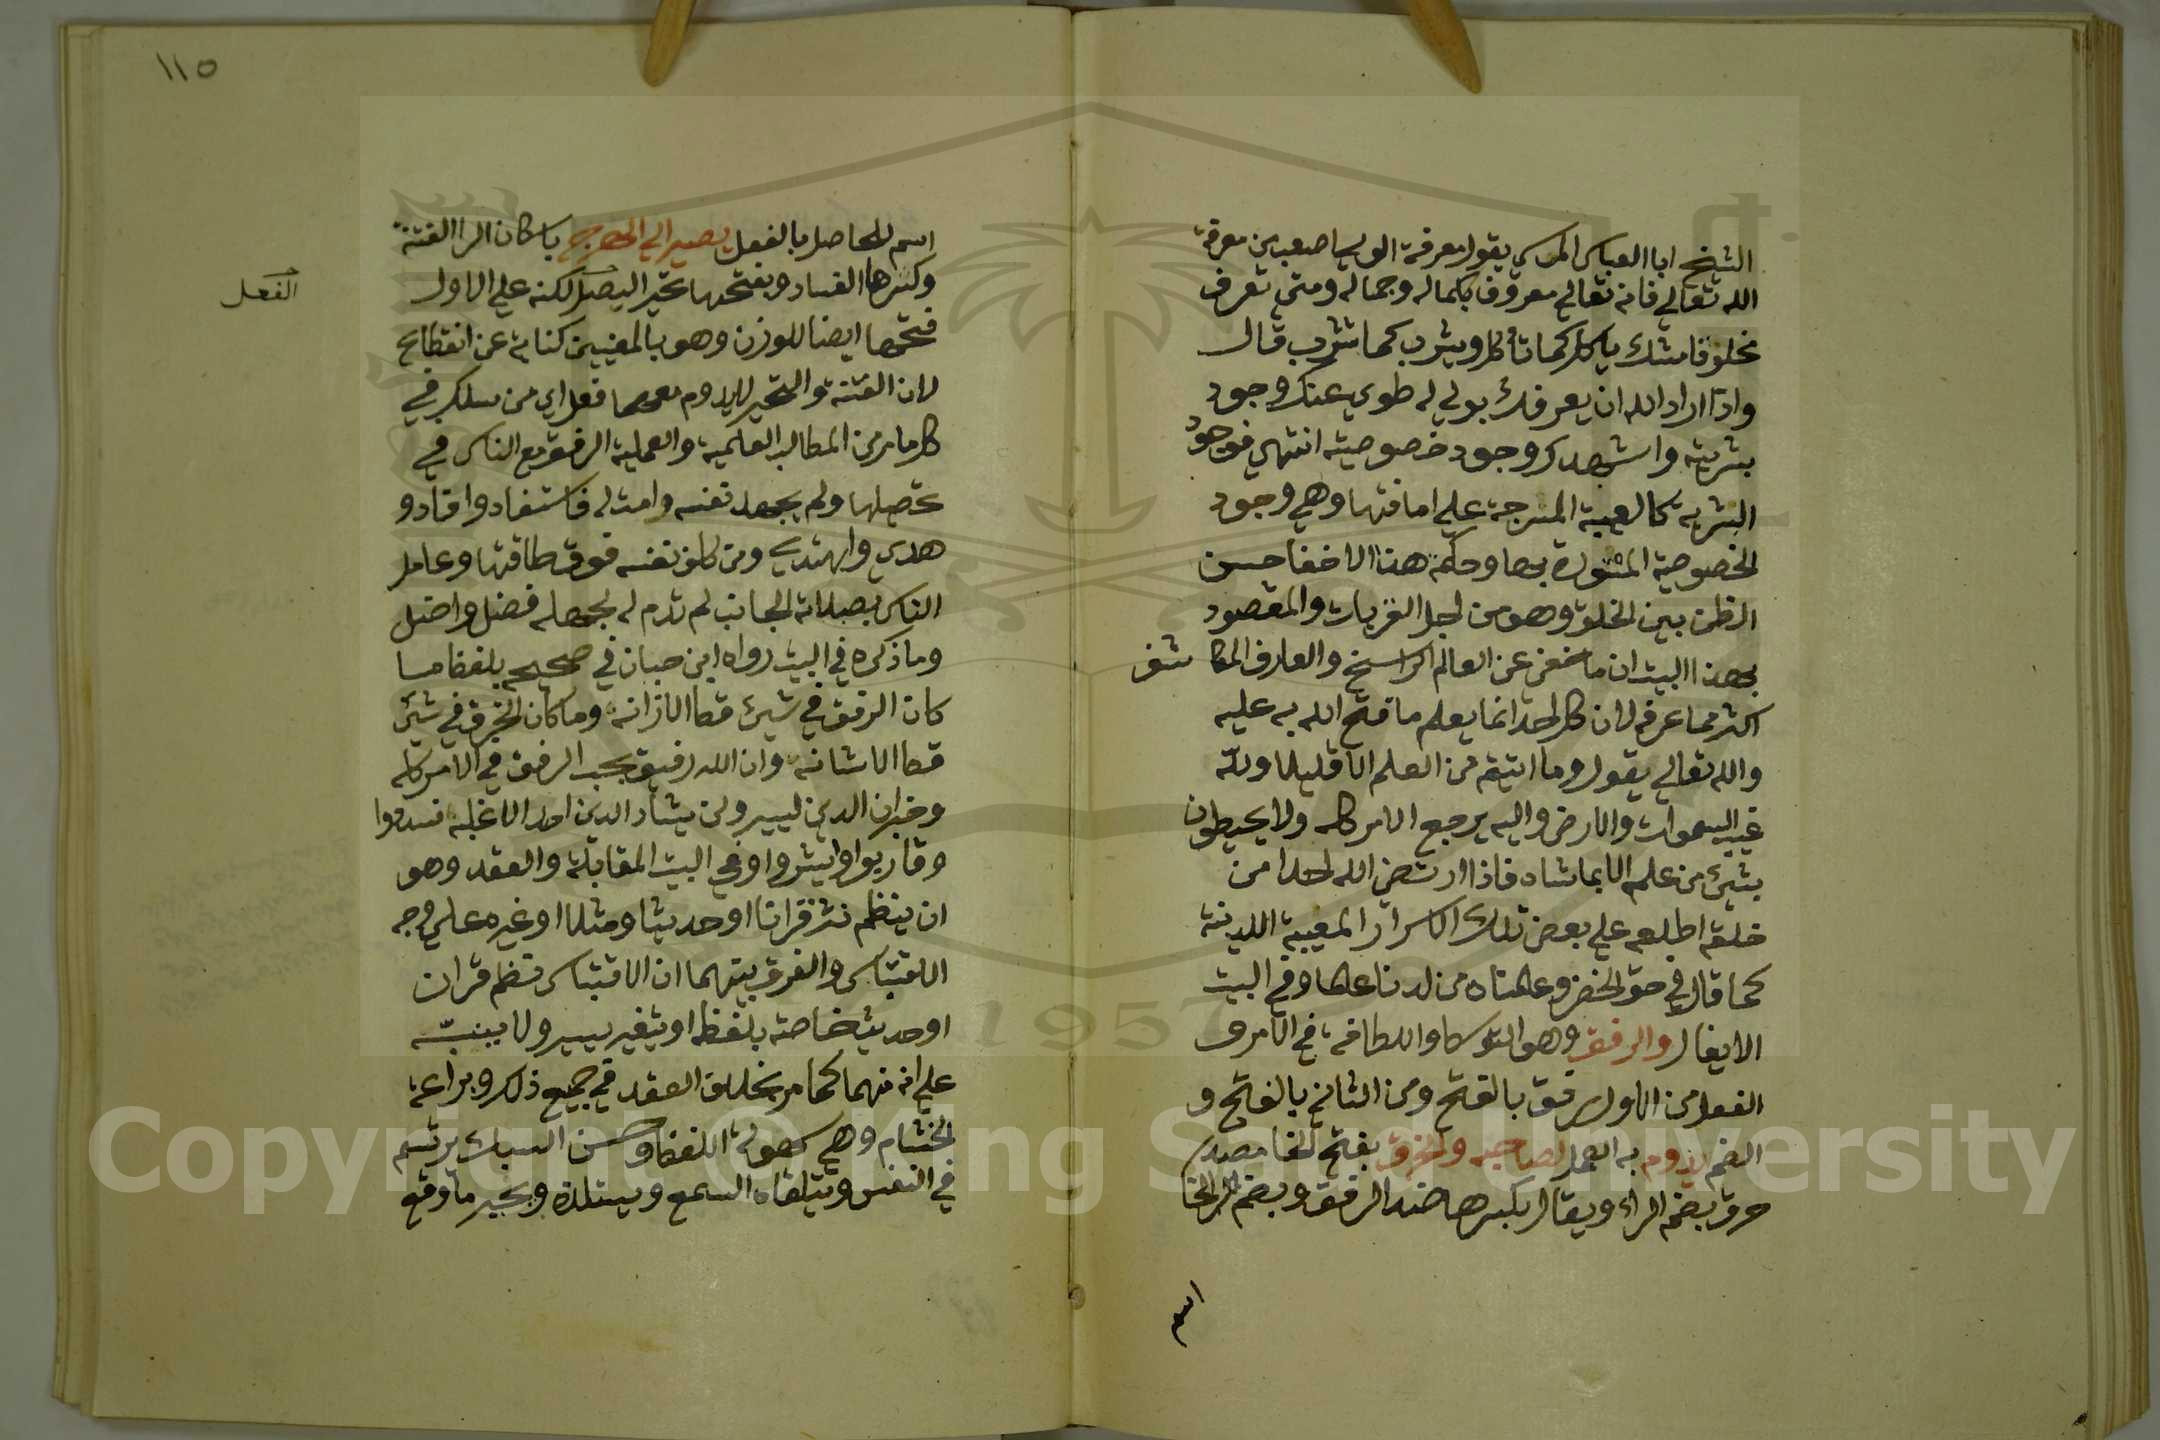 الشيخ ابا العباس المرسي يقول معرفة الولي اصعب من معرفة
الله تعالى فانه تعالى معروف بكماله وجماله ومتى تعرف
مخلوقا مثلك ياكل كما تأكل ويشرب كما تشرب قال
واذا اراد الله ان يعرفك بولي له طوى عنك وجود
بشريته واشهدك وجود خصوصيته انتهى فوجود
البشرية كالعيبة المسرجة على ما فتها وهي وجود
الخصوصية المستورة بها وحكمة هذا الاخفا حسن
الظن بين الخلق وهو من اجل القربات والمقصود
بهذا البيت ان ما خفي عن العالم الراسخ والعارف المكاشف
اكثر مما عرفه لان كل احد انما يعلم ما فتح الله به عليه
والله تعالى يقول وما اتيتم من العلم الا قليلا ولله
غيب السموات والارض واليه يرجع الامر كله ولا يحيطون
بشيئ من علمه الا بما شاه فاذا ارتضى الله احدا من
خلقه اطلعه على بعض تلك الاسرار المغيبة اللدنية
كما قال في حق الخضر وعلمناه من لدنا علما وفي البيت
الايغال والرفق وهو التوسط واللطافة في الامر و
الفعل من الاول رفق بالفتح ومن الثاني بالفتح و
الضم يدوم به العمل لصاحبه والخرق بفتح الخا مصدر
خرق بضم الراء ويقال بكسرها ضد الرفق وبضم الخا
اسم
١١٥
اسم للحاصل بالفعل يصير الى الهرج باسكان الرا الفتنة
وكثرها الفساد وبفتحها تحير البصر لكنه على الاول
فتحها ايضا للوزن وهو بالمعنيين كناية عن انقطاع
الفعل
لان الفتنة والتحير لا يدوم معهما فعل اي من سلك في
كل ما مر من المطالب العلمية والعملية الرفق مع الناس في
تحصيلها ولم يجهد نفسه وامتد له فاستفاد وافاد و
هدى واهتدى ومن كلف نفسه فوق طاقتها وعامل
الناس بصلابة الجانب لم تدم له لجهله فضل واضل
وما ذكره في البيت رواه ابن حبان في صحيحه بلفظ ما
كان الرفق في شيئ قط الا زانه وما كان الخرق في شيئ
قط الا شانه وان الله رفيق يحب الرفق في الامر كله
وخبر ان الدين ليسر ولن يشاد الدين احد الا غلبه فسددوا
وقاربوا وابشروا وفي البيت المقابلة والعقد وهو
ان ينظم نثر قرانا او حديثا او مثلا او غيره على وجه
الاقتباس والفرق بينهما ان الاقتباس نظم قران
او حديث خاصة بلفظه او بتغير يسير ولا ينبه
على انه منهما كما مر بخلاف العقد في جميع ذلك وبراعة
الختام وهي سهولة اللفظ وحسن السبك يرتسم
في النفس ويتلقاه السمع ويستلذه ويجبر ما وقع
1957
Copyright © King Saud University